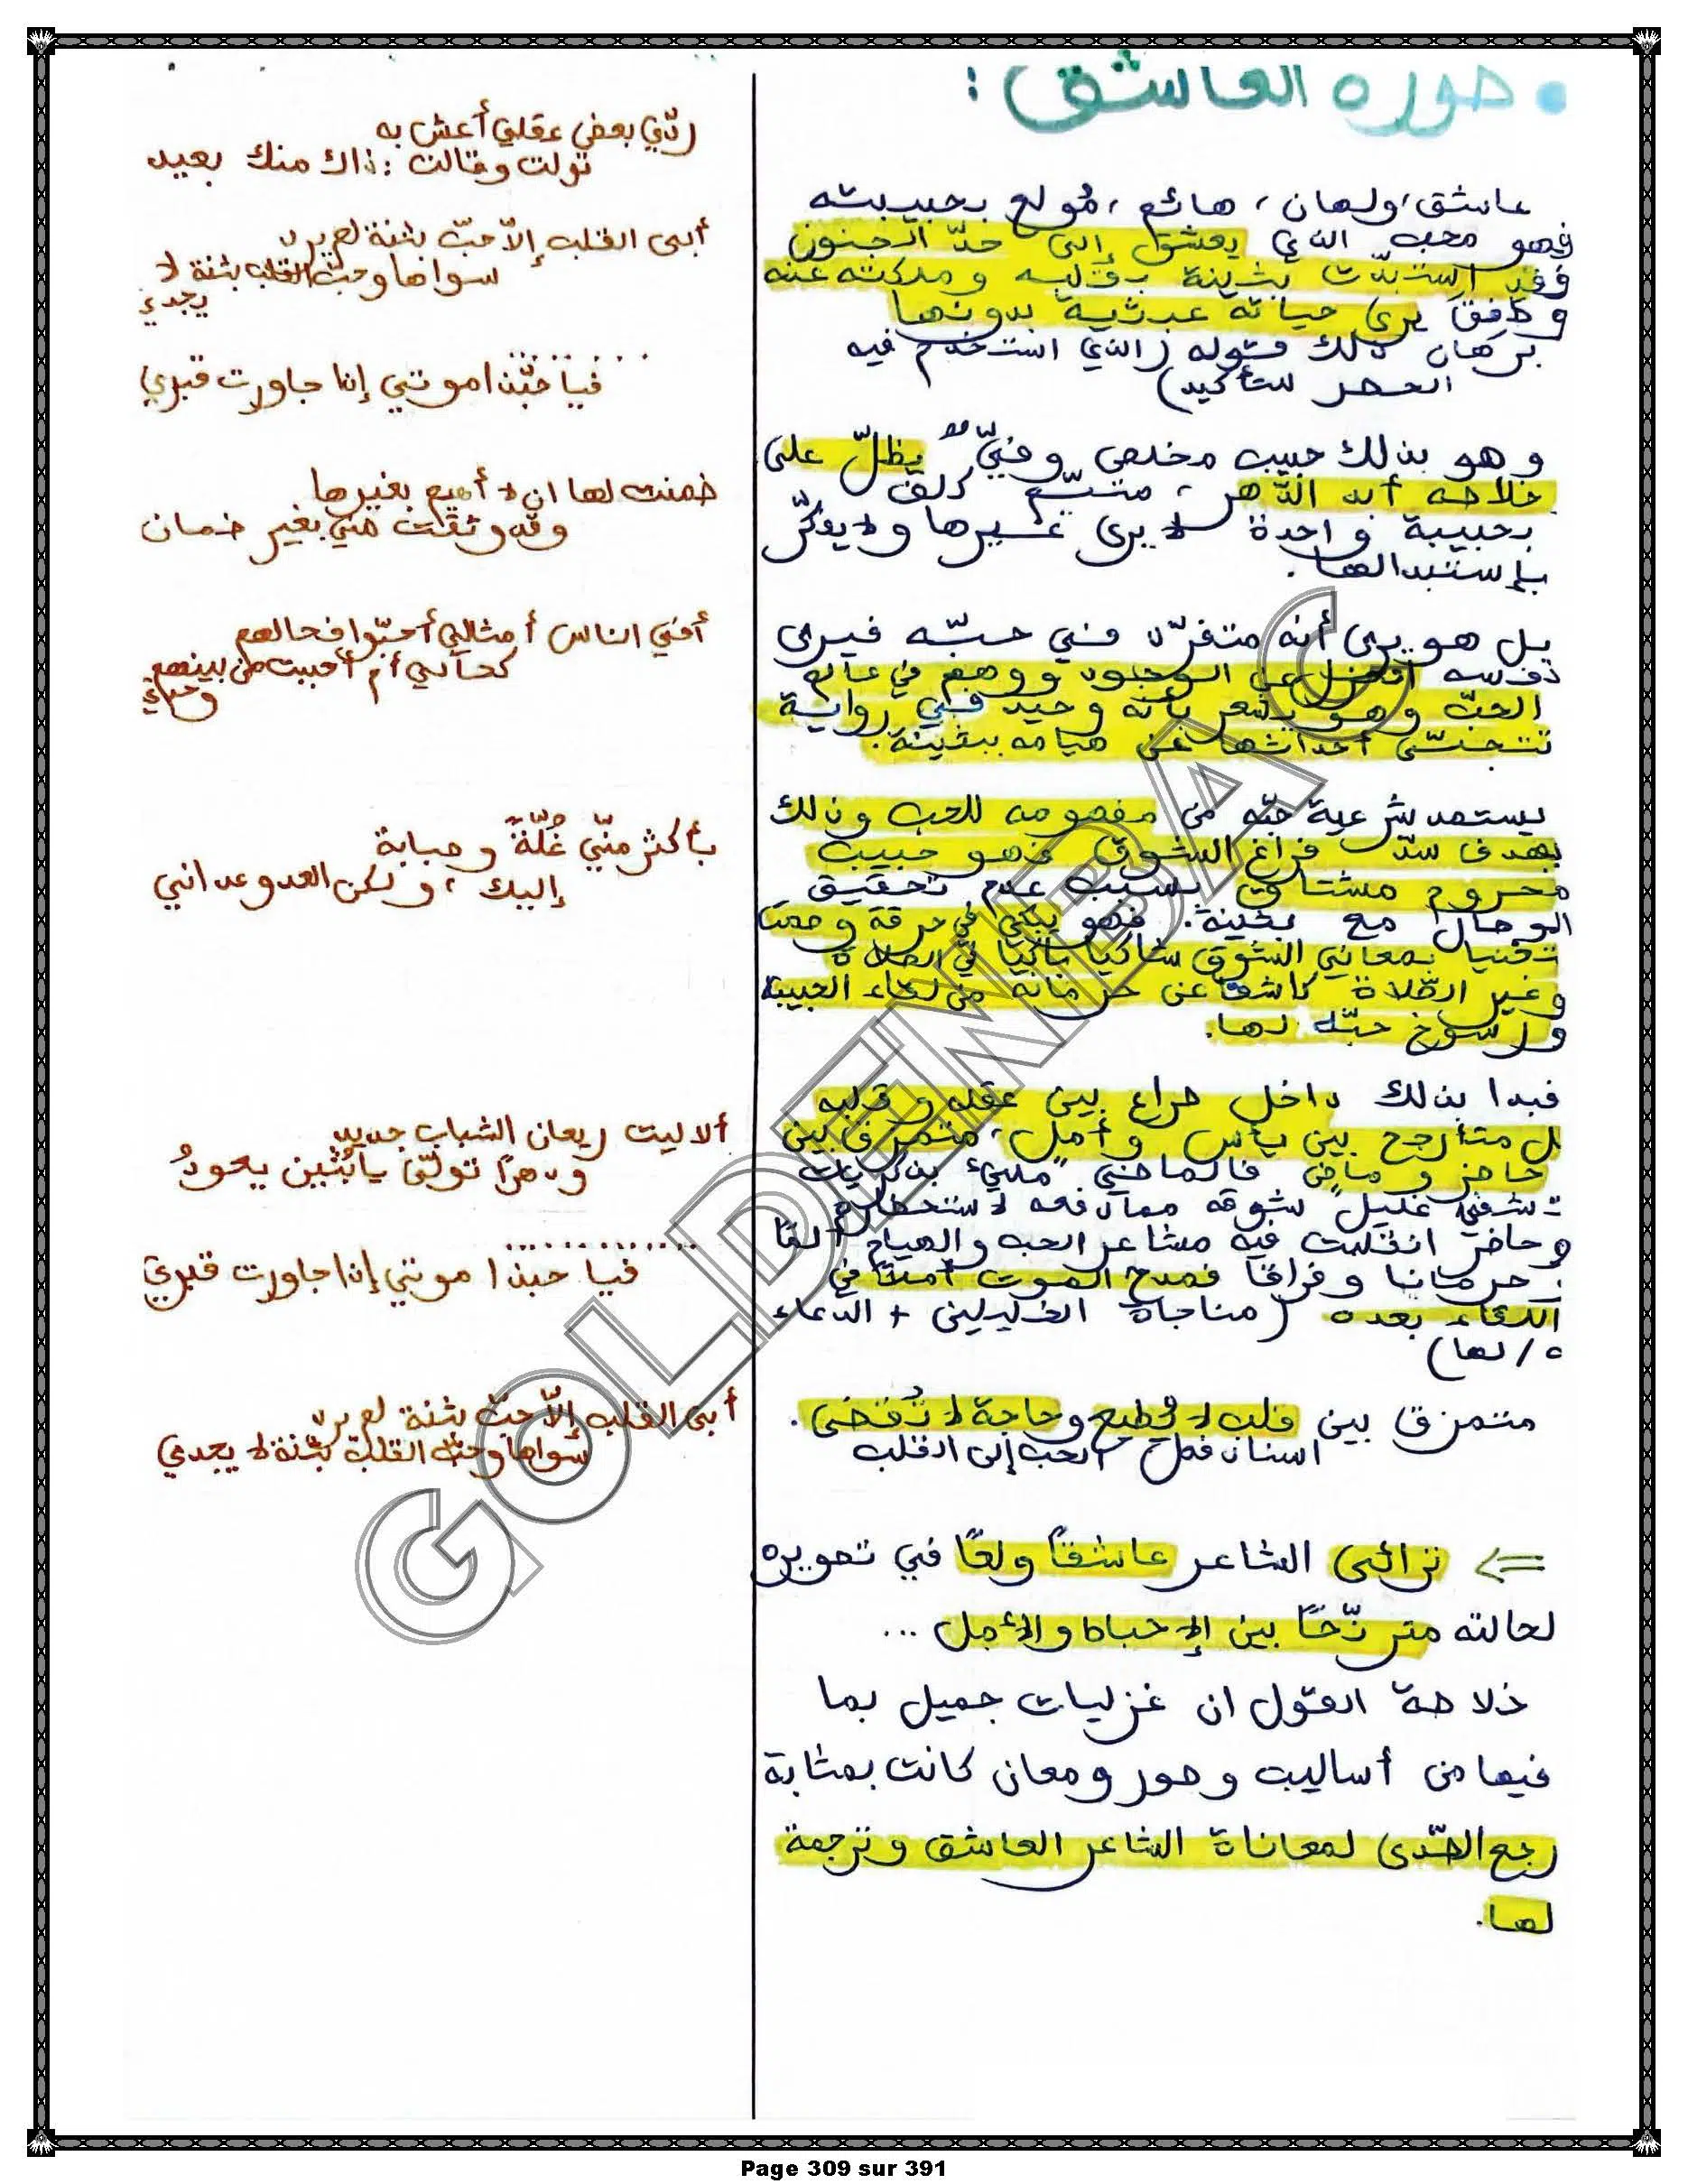 • صورة العاشق :
عاشق، ولهان، هائم، مُولع بحبيبته
فهو محب الذي يعشق إلى حدّ الجنون
فقد استبدّت بثينة بقلبه وملكته عنه
يرى حياته عبثية بدونها
برهان ذلك قوله (الذي استخدم فيه
الحصر للتأكيد)
وهو بذلك حبيب مخلص وفيّ يظلّ على
خلاصه أبد الدّهر، متيّم كلف
بحبيبة واحدة لا يرى غيرها ولا يفكّر
بإستبدالها.
بل هو يرى أنه متفرّد في حبّه فيرى
نفسه أفضل من الوجود ووهم في عالم
الحبّ وهو يشعر بأنه وحيد في رواية
تتجنّى أحداثها عن هيامه ببثينة.
يستمد شرعية حبّه من مفهومه للحب وذلك
بهدف سدّ فراغ الشوق فهو حبيب
محروم مشتاق بسبب عدم تحقيق
الوصال مع بثينة. فهو يبكي في حرقة وصمت
تغنيا بمعاني الشوق شاكيا باكيا في الصلاة
وغير الصلاة كاشفا عن حرمانه من لقاء الحبيبة
ورسوخ حبّه لها.
فبدا بذلك داخل صراع بين عقله وقلبه
بل متأرجح بين يأس وأمل، متمزق بين
حاضر وماض فالماضي "مليء بذكريات
تشفي غليل" شوقه مما دفعه لاستحضاره
وحاضر انقلبت فيه مشاعر الحب والهيام ألمًا
حرمانا وفراقا فمدح الموت أملاً في
اللقاء بعده (مناجاة الخليلين + الدعاء
ه / لها)
متمزق بين قلب لا يُطيع وحاجة لا تُقضى.
اسناد فعل الحب إلى القلب
=> تراءى الشاعر عاشقًا ولعًا في تصويره
لحالته مترنّحًا بين الإحباط والأمل ...
خلاصة القول ان غزليات جميل بما
فيها من أساليب وصور ومعان كانت بمثابة
رجع الصّدى لمعاناة الشاعر العاشق وترجمة
لها.
ردّي بعض عقلي أعش به
تولت وقالت : ذاك منك بعيد
أبى القلب إلاّ حبّ بثنة لم يرد
سواها وحبّ القلب بثنة لا
يجدي
..........
فيا حبّذا موتي إذا جاورت قبري
ضمنت لها ان لا أهيم بغيرها
وقد وثقت مني بغير ضمان
أفي الناس أمثالي أحبّوا فحالهم
كحالي أم أحببت من بينهم
وحدي
بأكثر منّي غُلّةً وصبابة
إليك، ولكن العدو عداني
ألا ليت ريعان الشباب جديد
ودهرًا تولّى يا بُثين يعودُ
..............
فيا حبذا موتي إذا جاورت قبري
أبى القلب إلاّ حبّ بثنة لم يرد
سواها وحبّ القلب بثنة لا يجدي
GOLDENBAC
Page 309 sur 391